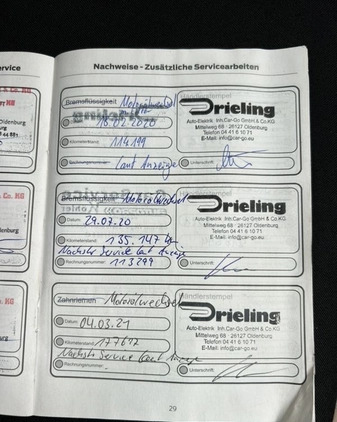 Nachweise - Zusätzliche Servicearbeiten
Bremsflüssigkeit Motorölwechsel
Datum: 18.02.2020
Kilometerstand: 114199
Rechnungsnummer: laut Anzeige
Händlerstempel
Drieling
Auto-Elektrik Inh.Car-Go GmbH & Co.KG
Mittelweg 68 · 26127 Oldenburg
Telefon 04 41 6 10 71
E-Mail: info@car-go.eu
Unterschrift:
Bremsflüssigkeit Motorölwechsel
Datum: 29.07.20
Kilometerstand: 155.147 km
Nächster Service laut Anzeige
Rechnungsnummer: 113299
Drieling
Auto-Elektrik Inh.Car-Go GmbH & Co.KG
Mittelweg 68 · 26127 Oldenburg
Telefon 04 41 6 10 71
E-Mail: info@car-go.eu
Unterschrift:
Zahnriemen Motorölwechsel
Datum: 04.03.21
Kilometerstand: 177612
Nächster Service laut Anzeige
Rechnungsnummer:
Händlerstempel
Drieling
Auto-Elektrik Inh.Car-Go GmbH & Co.KG
Mittelweg 68 · 26127 Oldenburg
Telefon 04 41 6 10 71
E-Mail: info@car-go.eu
Unterschrift:
29